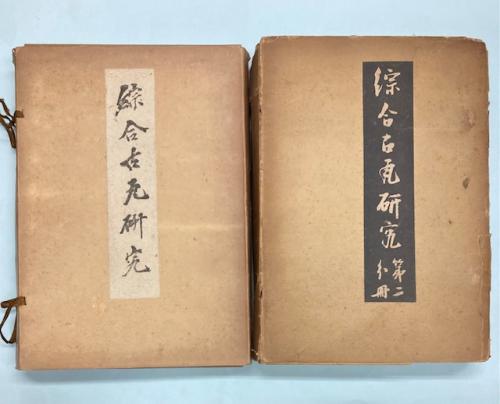 綜合古瓦研究
綜合古瓦研究
第二
分冊